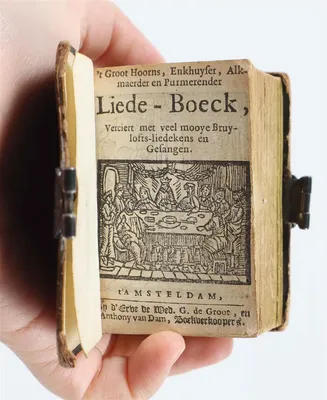 't Groot Hoorns, Enkhuyser, Alk-
maerder en Purmerender
Liede-Boeck,
Verciert met veel mooye Bruy-
lofts-liedekens en
Gesangen.
t'AMSTELDAM,
By d'Erve de Wed. G. de Groot, en
Anthony van Dam, Boekverkoopers.